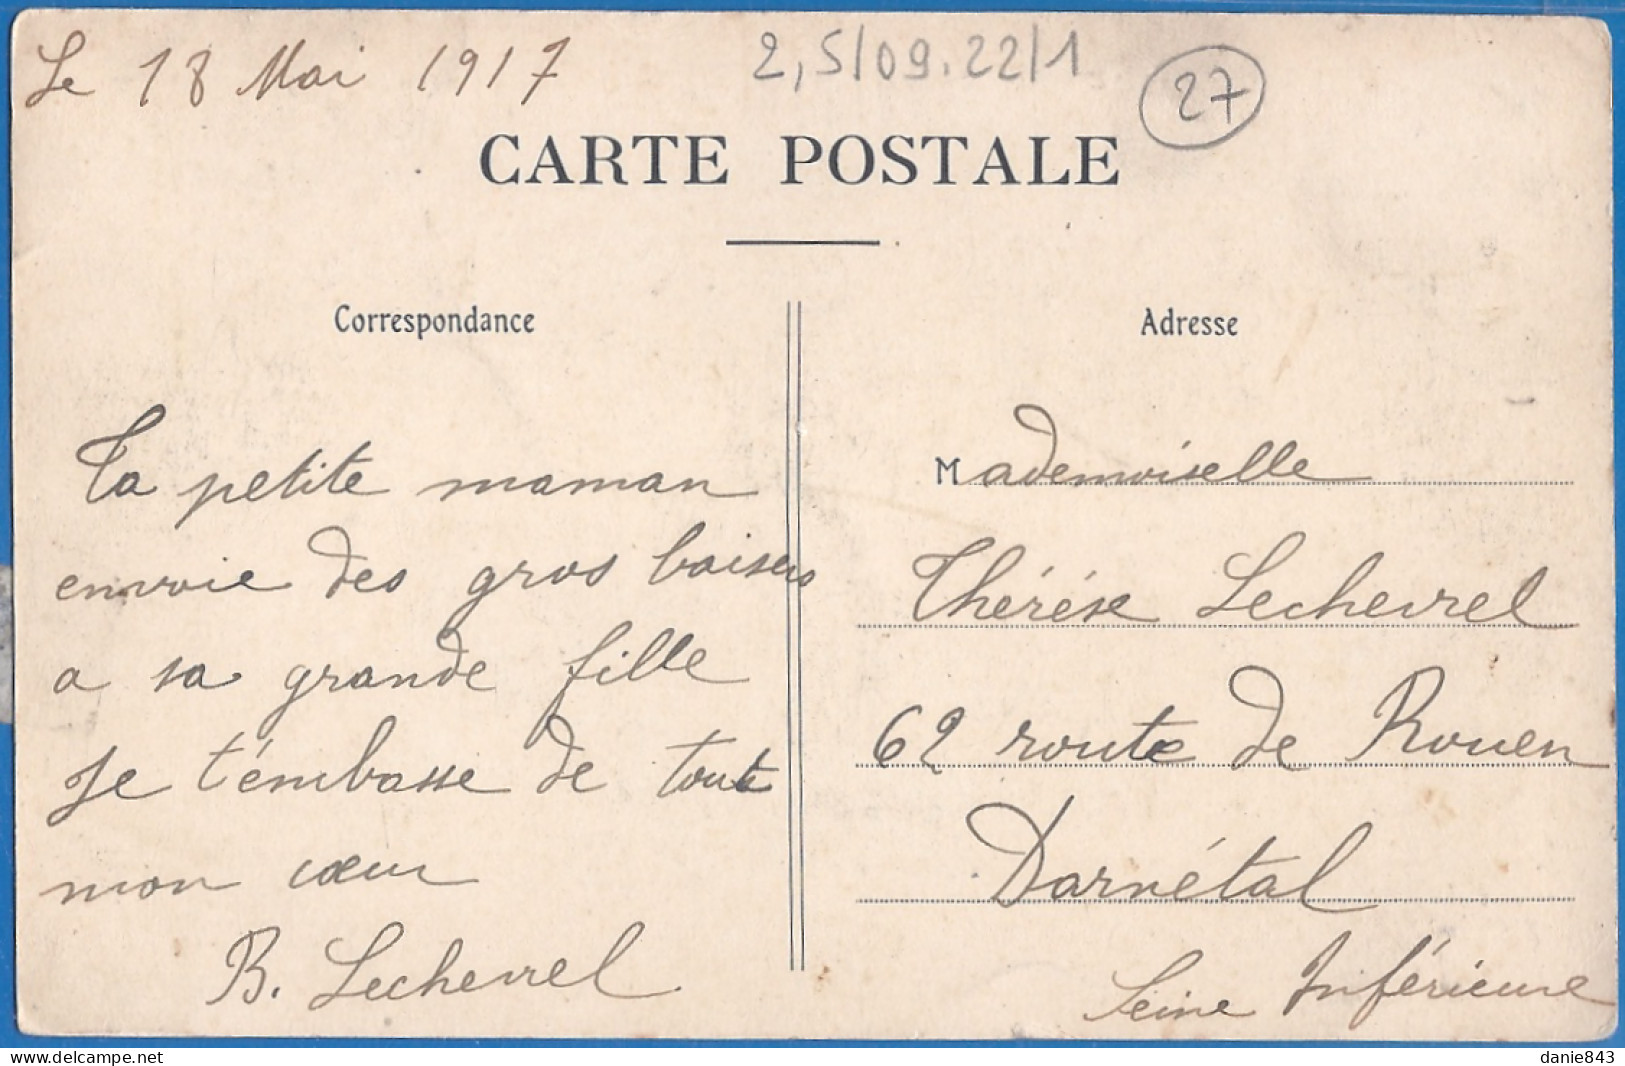 Le 18 Mai 1917
2,5/09.22/1
27
CARTE POSTALE
Correspondance
Ta petite maman
envoie des gros baisers
a sa grande fille
Je t'embasse de tout
mon cœur
B. Lechevrel
Adresse
Mademoiselle
Thérése Lechevrel
62 route de Rouen
Darnétal
Seine Inférieure
www.delcampe.net
danie843